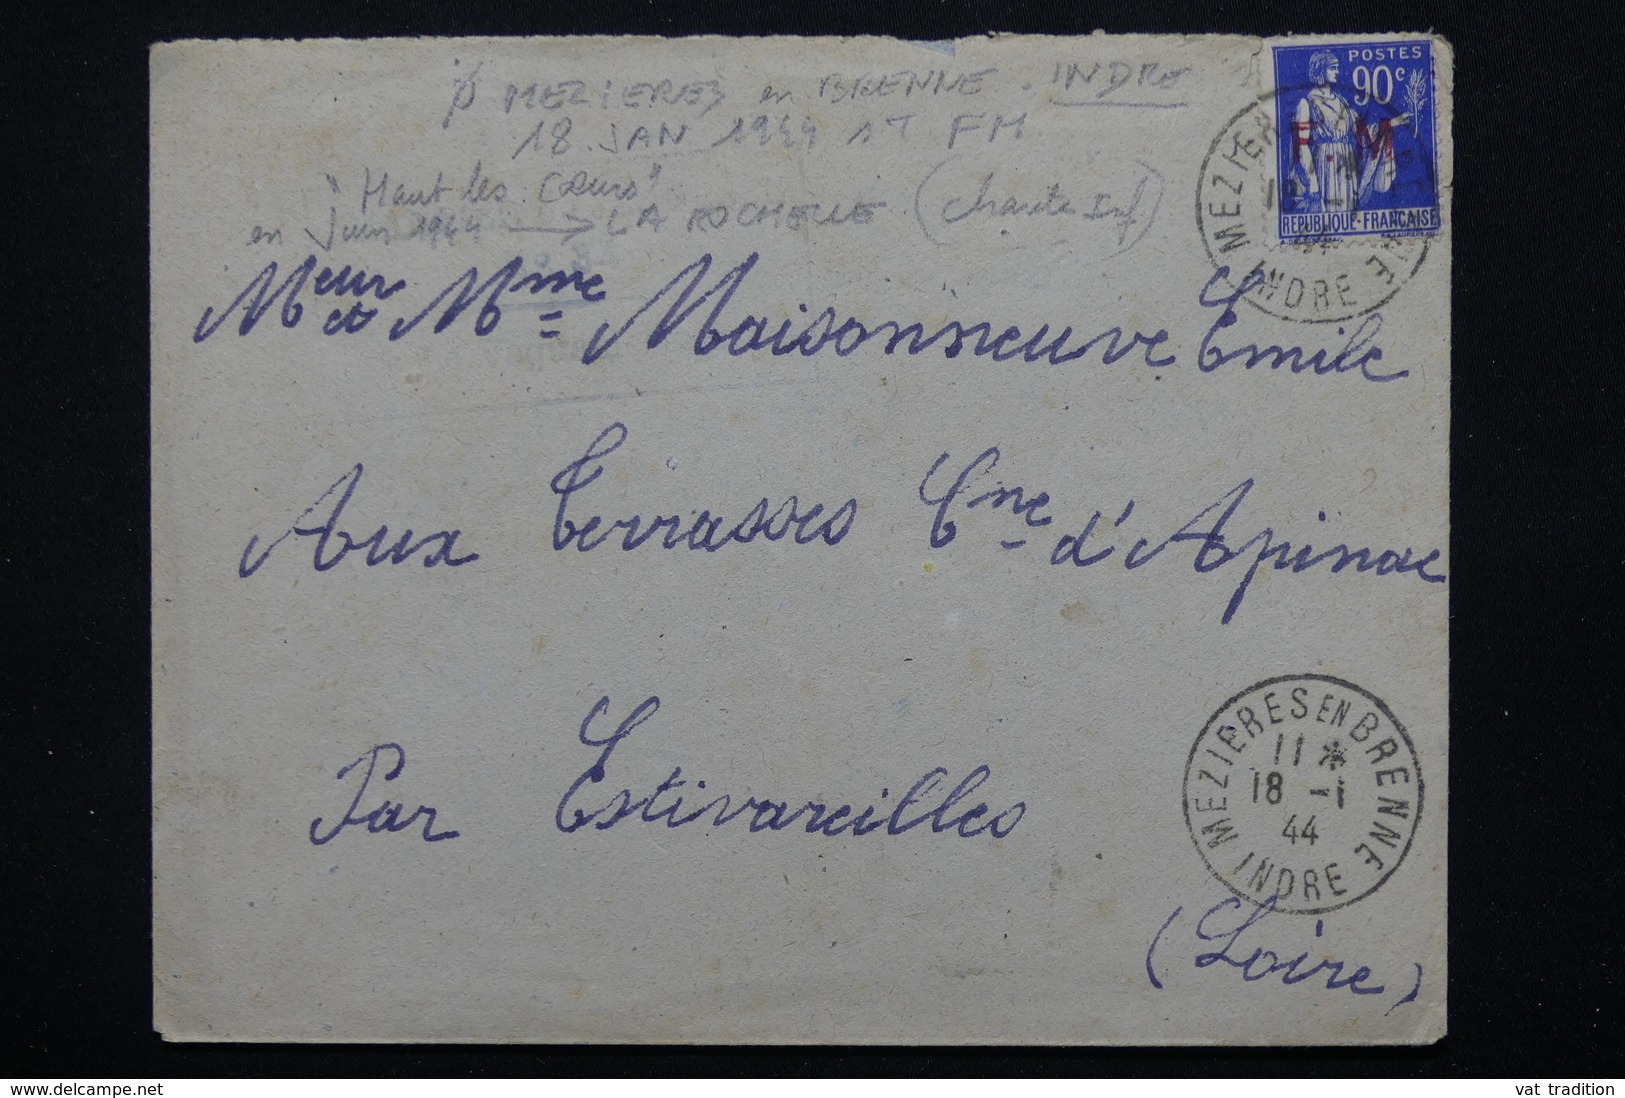 MEZIERES en BRENNE. INDRE
18 JAN 1944 1T FM
"Haut les Cœurs"
en Juin 1944 → LA ROCHELLE (Charente Inf)
POSTES
90c
F.M.
REPUBLIQUE-FRANÇAISE
INDRE
Meur et Mme Maisonneuve Emile
Aux Terrasses Cne d'Apinac
Par Estivareilles
(Loire)
MEZIERES EN BRENNE
11 *
18 -1
44
INDRE
© delcampe.net
vat_tradition